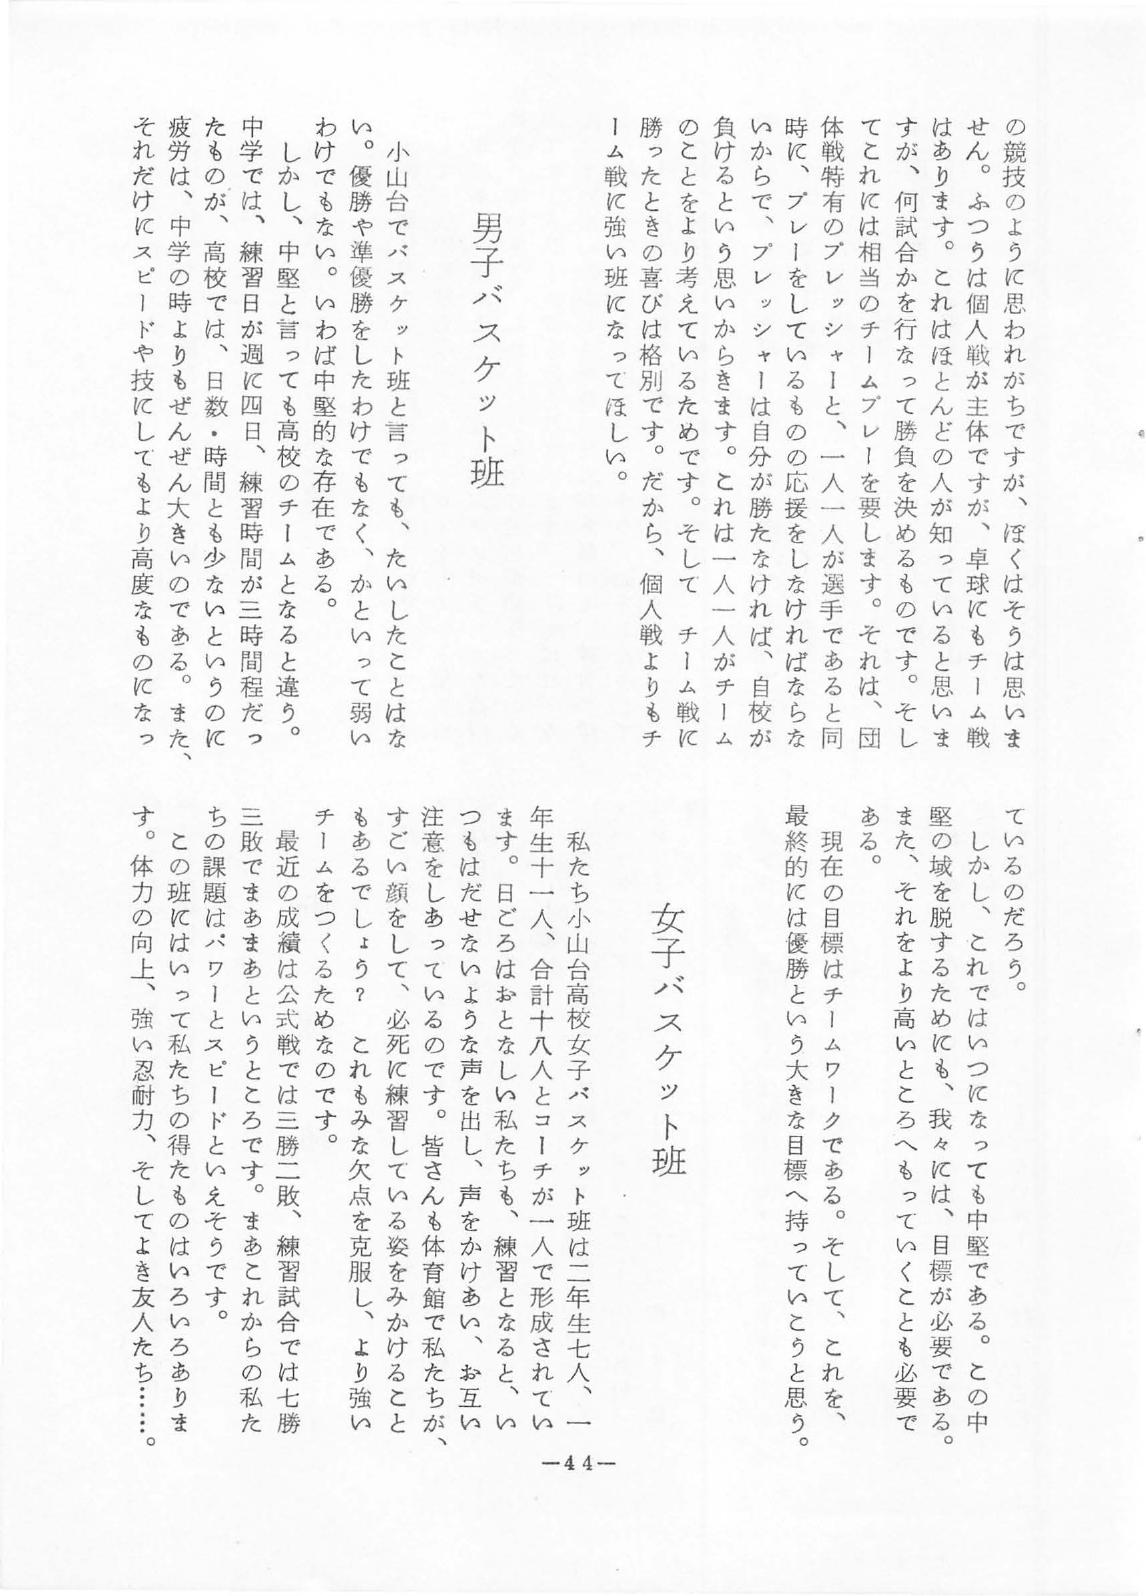 の競技のように思われがちですが、ぼくはそうは思いま
せん。ふつうは個人戦が主体ですが、卓球にもチーム戦
はあります。これはほとんどの人が知っていると思いま
すが、何試合かを行なって勝負を決めるものです。そし
てこれには相当のチームプレーを要します。それは、団
体戦特有のプレッシャーと、一人一人が選手であると同
時に、プレーをしているものの応援をしなければならな
いからで、プレッシャーは自分が勝たなければ、自校が
負けるという思いからきます。これは一人一人がチーム
のことをより考えているためです。そして チーム戦に
勝ったときの喜びは格別です。だから、個人戦よりもチ
ーム戦に強い班になってほしい。
男子バスケット班
小山台でバスケット班と言っても、たいしたことはな
い。優勝や準優勝をしたわけでもなく、かといって弱い
わけでもない。いわば中堅的な存在である。
しかし、中堅と言っても高校のチームとなると違う。
中学では、練習日が週に四日、練習時間が三時間程だっ
たものが、高校では、日数・時間とも少ないというのに
疲労は、中学の時よりもぜんぜん大きいのである。また、
それだけにスピードや技にしてもより高度なものになっ
ているのだろう。
しかし、これではいつになっても中堅である。この中
堅の域を脱するためにも、我々には、目標が必要である。
また、それをより高いところへもっていくことも必要で
ある。
現在の目標はチームワークである。そして、これを、
最終的には優勝という大きな目標へ持っていこうと思う。
女子バスケット班
私たち小山台高校女子バスケット班は二年生七人、一
年生十一人、合計十八人とコーチが一人で形成されてい
ます。日ごろはおとなしい私たちも、練習となると、い
つもはだせないような声を出し、声をかけあい、お互い
注意をしあっているのです。皆さんも体育館で私たちが、
すごい顔をして、必死に練習している姿をみかけること
もあるでしょう? これもみな欠点を克服し、より強い
チームをつくるためなのです。
最近の成績は公式戦では三勝二敗、練習試合では七勝
三敗でまあまあというところです。まあこれからの私た
ちの課題はパワーとスピードといえそうです。
この班にはいって私たちの得たものはいろいろありま
す。体力の向上、強い忍耐力、そしてよき友人たち……。
—44—